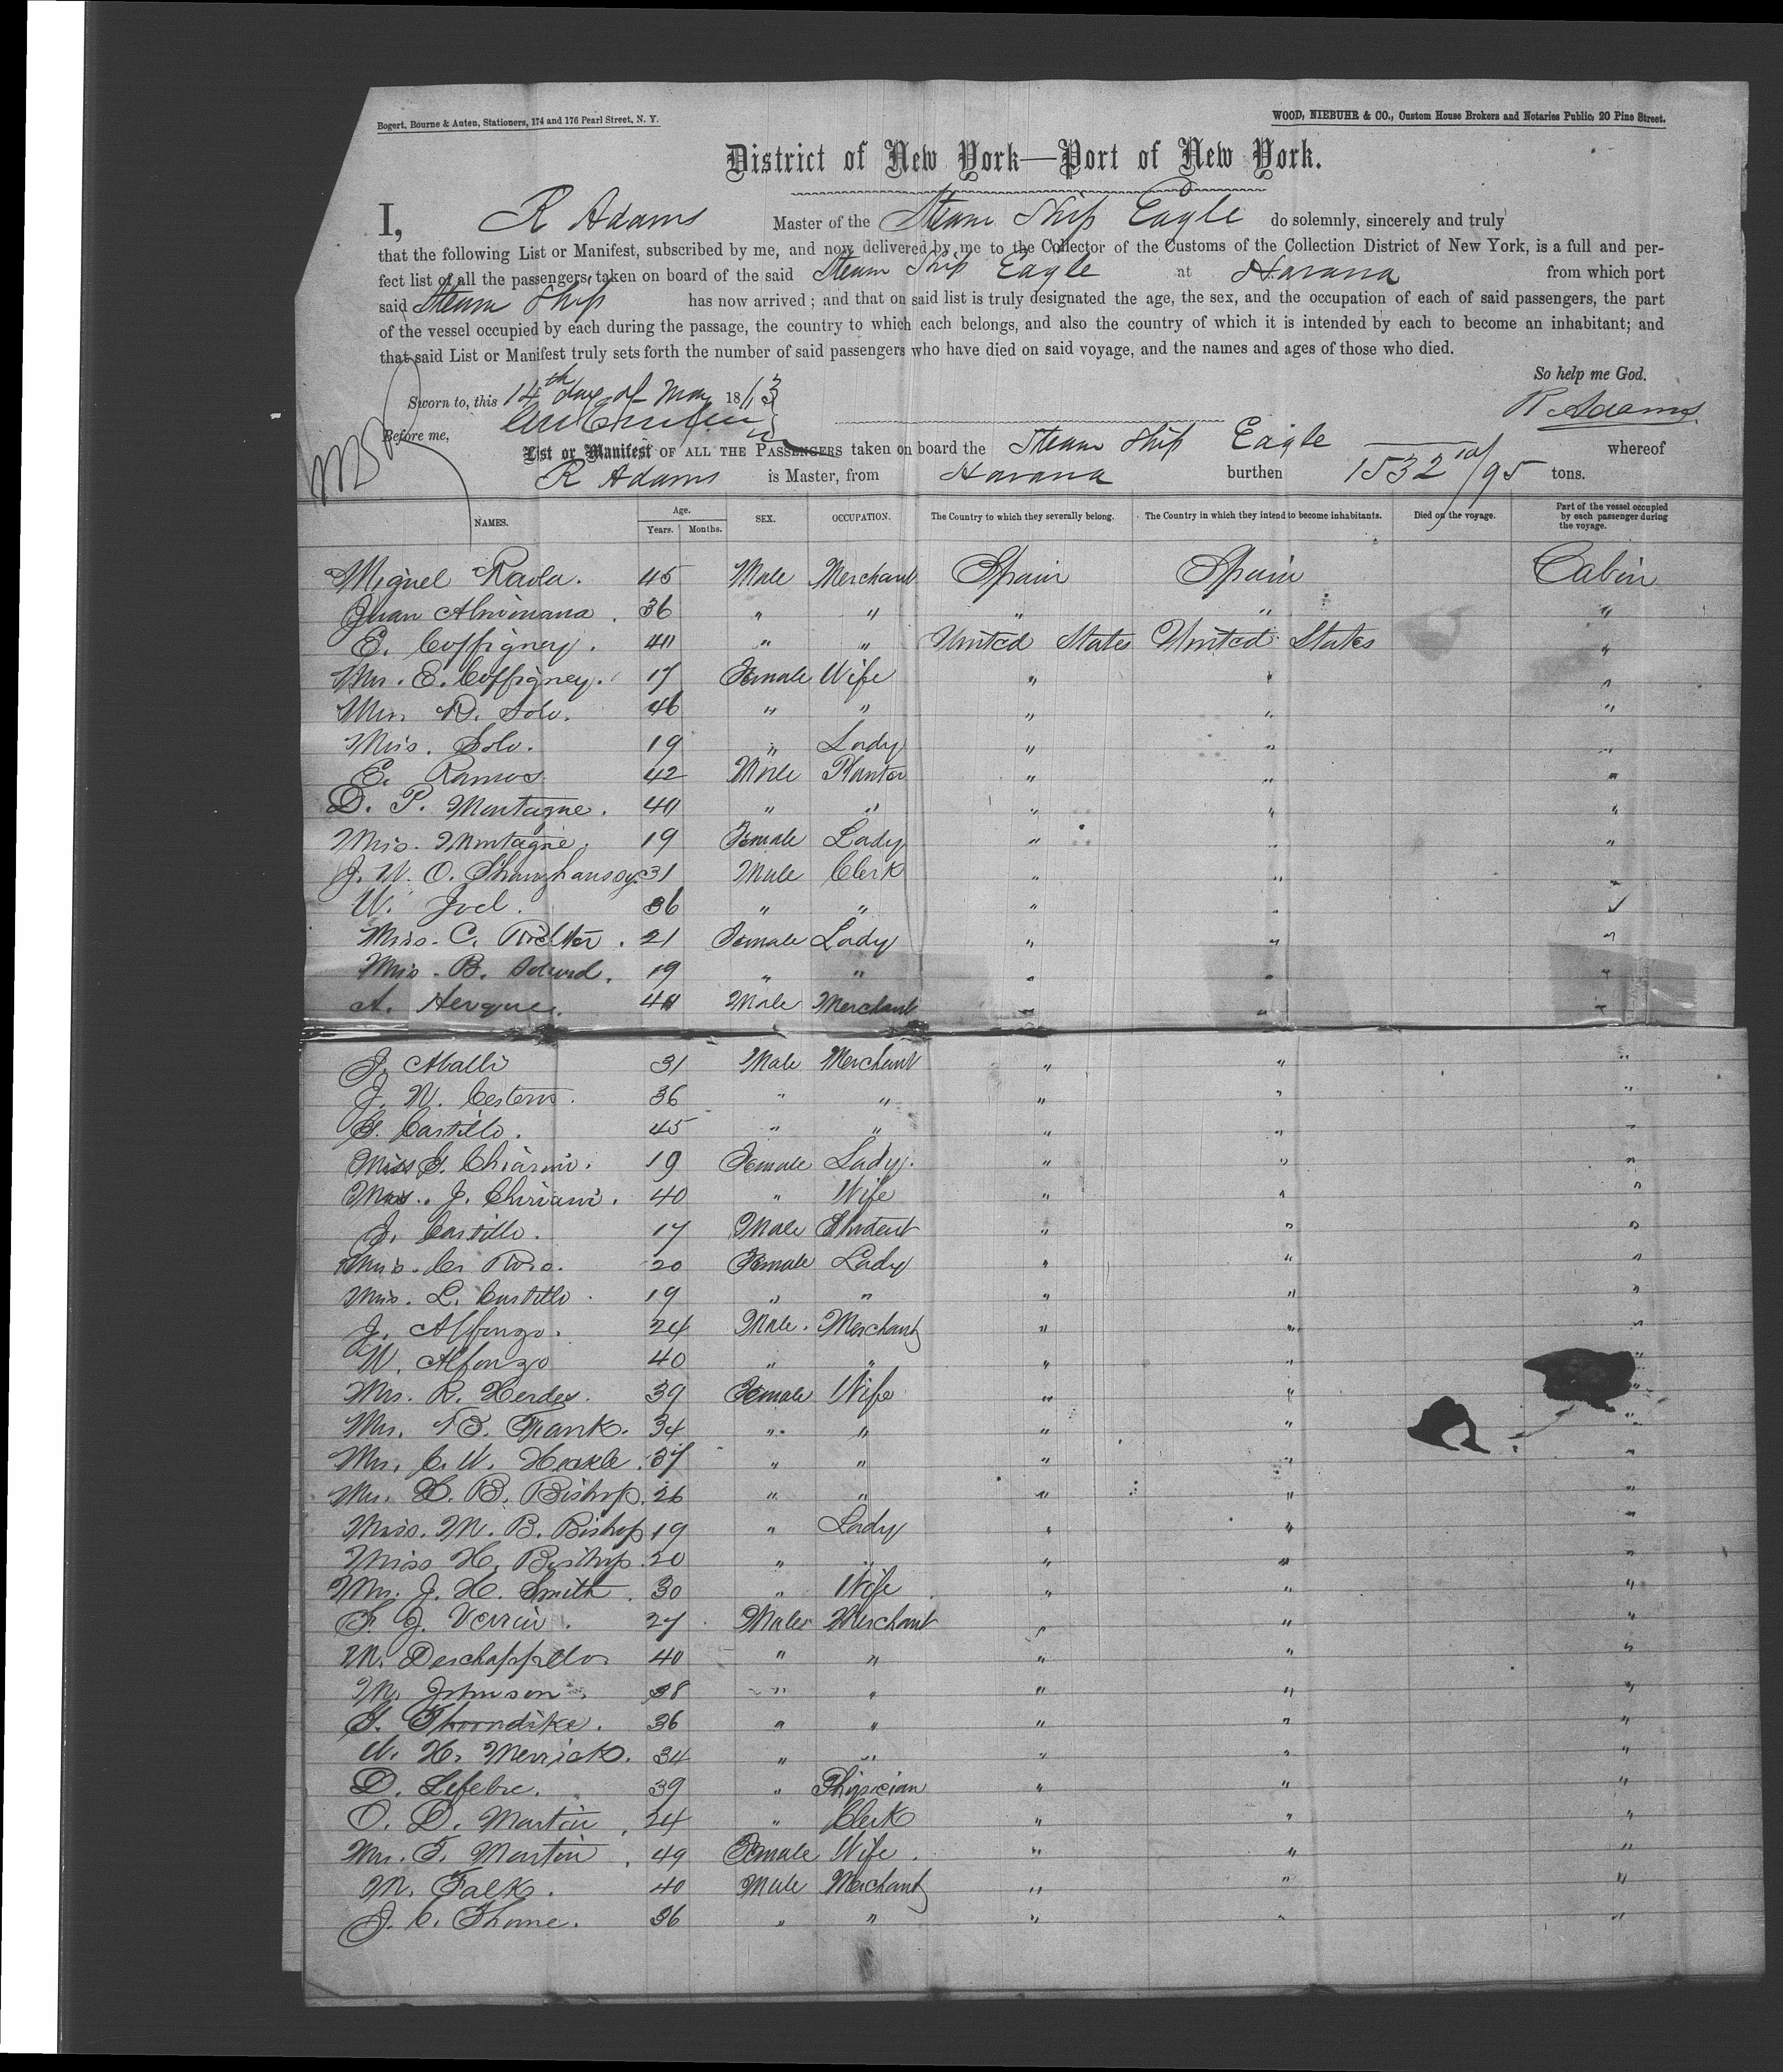 Bogert, Bourne & Auten, Stationers, 174 and 176 Pearl Street, N. Y.
WOOD, NIEBUHR & CO., Custom House Brokers and Notaries Public, 20 Pine Street.
District of New York—Port of New York.
I, R Adams Master of the Steam Ship Eagle do solemnly, sincerely and truly
that the following List or Manifest, subscribed by me, and now delivered by me to the Collector of the Customs of the Collection District of New York, is a full and per-
fect list of all the passengers taken on board of the said Steam Ship Eagle at Havana from which port
said Steam Ship has now arrived; and that on said list is truly designated the age, the sex, and the occupation of each of said passengers, the part
of the vessel occupied by each during the passage, the country to which each belongs, and also the country of which it is intended by each to become an inhabitant; and
that said List or Manifest truly sets forth the number of said passengers who have died on said voyage, and the names and ages of those who died.
So help me God.
Sworn to, this 14th day of May 1873
R Adams
Before me,
List or Manifest OF ALL THE PASSENGERS taken on board the Steam Ship Eagle whereof
R Adams is Master, from Havana burthen 1532 10/95 tons.
NAMES. Age. Years. Months. SEX. OCCUPATION. The Country to which they severally belong. The Country in which they intend to become inhabitants. Died on the voyage. Part of the vessel occupied by each passenger during the voyage.
Miguel 45 Male Merchant Spain Spain Cabin
Juan 36 " " " " "
E. Coffigney. " " United States United States "
Mrs. E. Coffigney. 17 Female Wife " " "
46 " " " " "
Miss. 19 " Lady " " "
E. Ramos 42 Male Planter " " "
D. P. Montagne. " " " " "
Miss. Montagne. 19 Female Lady " " "
J. W. O. 31 Male Clerk " " "
W. Joel. 36 " " " " "
Miss. C. 21 Female Lady " " "
Miss. B. 19 " " " " "
A. Male Merchant " " "
J. 31 Male Merchant " " "
J. N. 36 " " " " "
G. Castillo. 45 " " " " "
Miss G. 19 Female Lady. " " "
Mrs. J. 40 " Wife " " "
J. Castillo. 17 Male Student " " "
Miss. 20 Female Lady " " "
Miss. L. Castillo. 19 " " " " "
J. Alfonzo. 24 Male. Merchant " " "
N. Alfonzo 40 " " " " "
Mrs. R. 39 Female Wife " " "
Mrs. Frank. 34 " " " " "
Mrs. C. W. 37 " " " " "
Mrs. H. B. Bishop. 26 " " " " "
Miss. M. B. Bishop 19 " Lady " " "
Miss H. Bishop. 20 " " " " "
Mrs. J. H. Smith. 30 " Wife " " "
F. J. 27 Male Merchant " " "
M. 40 " " " " "
M. Johnson. 38 " " " " "
Thorndike. 36 " " " " "
W. H. Merrick. 34 " " " " "
D. Lefebre. 39 " Physician " " "
O. D. Martin. 24 " Clerk " " "
Mrs. F. Martin. 49 Female Wife. " " "
M. Falk. 40 Male Merchant " " "
J. C. Thorne. 36 " " " " "